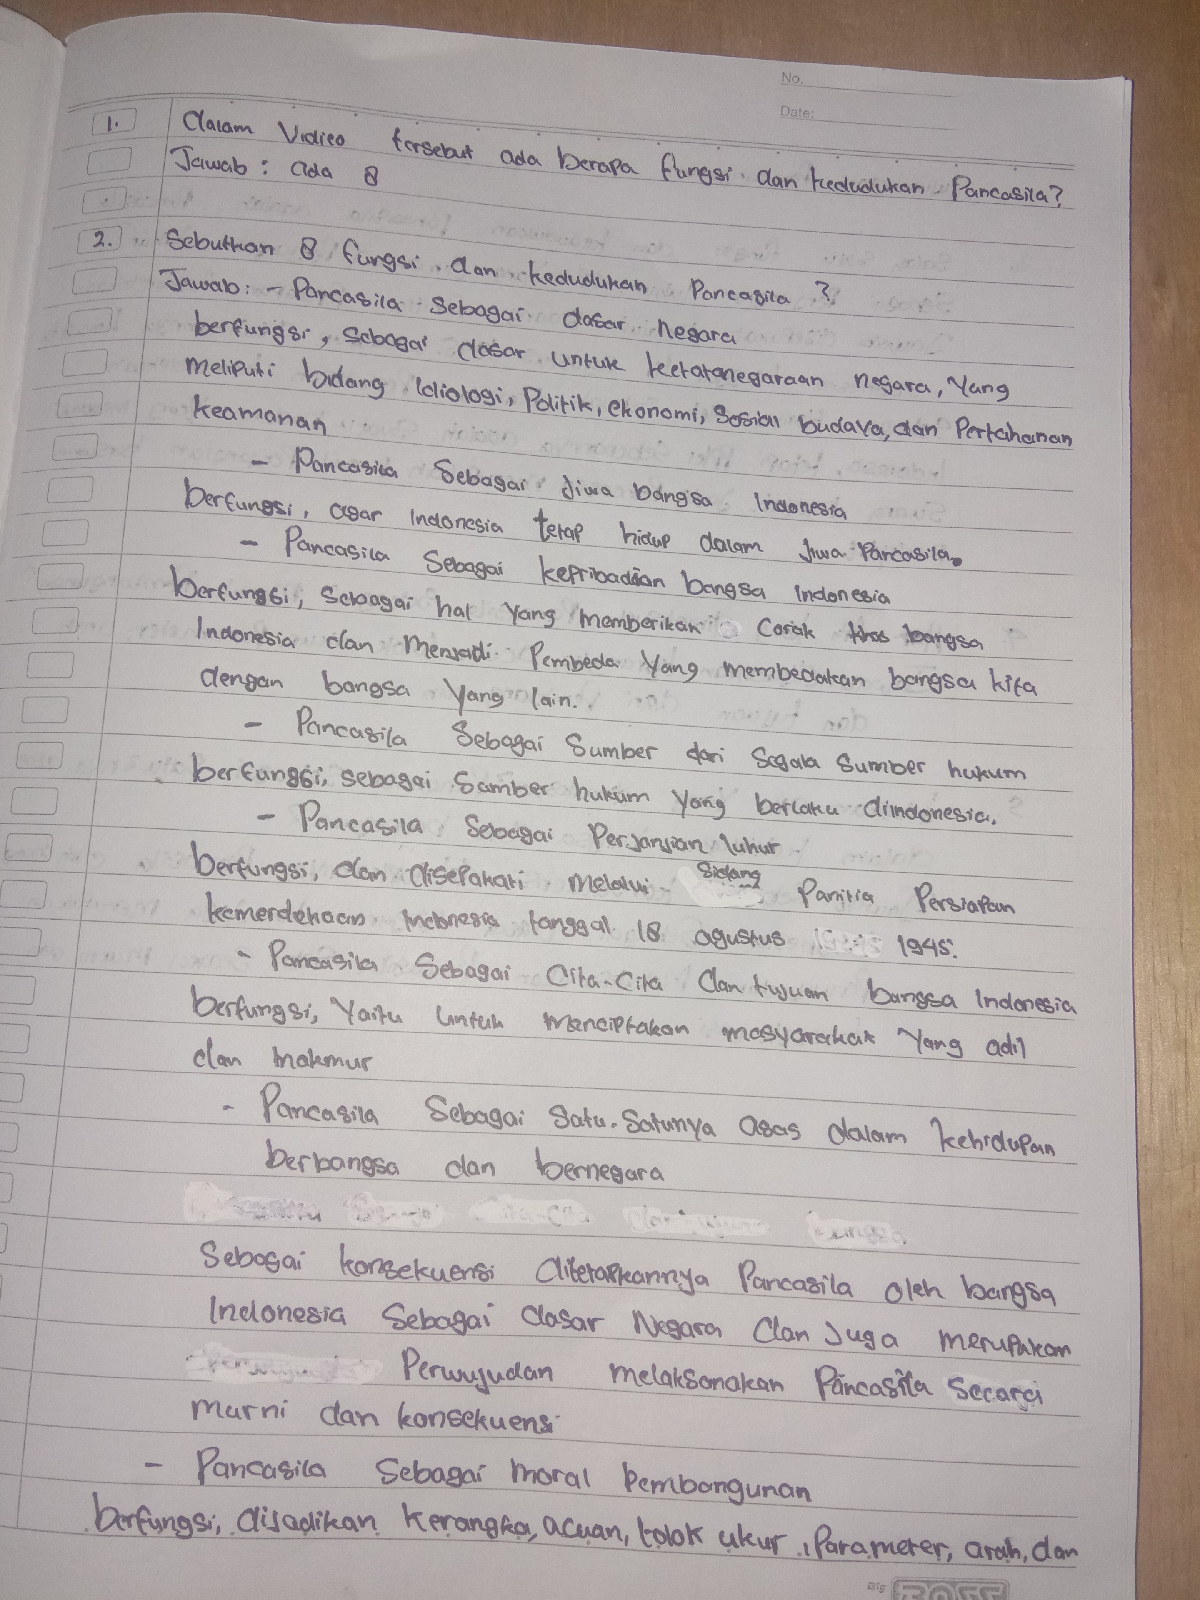 No.
Date:
1. Dalam Vidieo tersebut ada berapa fungsi dan kedudukan Pancasila?
Jawab : ada 8
2. Sebutkan 8 fungsi dan kedudukan Pancasila ?
Jawab: - Pancasila Sebagai dasar negara
berfungsi, sebagai dasar untuk ketatanegaraan negara, Yang
meliputi bidang Idiologi, Politik, ekonomi, Sosial budaya, dan Pertahanan
keamanan
- Pancasila Sebagai Jiwa bangsa Indonesia
berfungsi, agar Indonesia tetap hidup dalam Jiwa Pancasila.
- Pancasila Sebagai kepribadian bangsa Indonesia
berfungsi, sebagai hal yang memberikan Corak khas bangsa
Indonesia dan Menjadi Pembeda Yang membedakan bangsa kita
dengan bangsa Yang lain.
- Pancasila Sebagai Sumber dari Segala Sumber hukum
berfungsi, sebagai Sumber hukum Yang berlaku diindonesia.
- Pancasila Sebagai Perjanjian luhur
berfungsi, dan disepakati melalui Sidang Panitia Persiapan
kemerdekaan Indonesia tanggal 18 agustus 1945.
- Pancasila Sebagai Cita-Cita dan tujuan bangsa Indonesia
berfungsi, Yaitu Untuk menciptakan masyarakat Yang adil
dan makmur
- Pancasila Sebagai Satu-Satunya asas dalam kehidupan
berbangsa dan bernegara
Sebagai konsekuensi diterapkannya Pancasila oleh bangsa
Indonesia Sebagai dasar Negara dan Juga merupakan
Perwujudan melaksanakan Pancasila Secara
murni dan konsekuensi
- Pancasila Sebagai moral Pembangunan
berfungsi, disadikan kerangka, acuan, tolok ukur, Parameter, arah, dan
Big BOSS